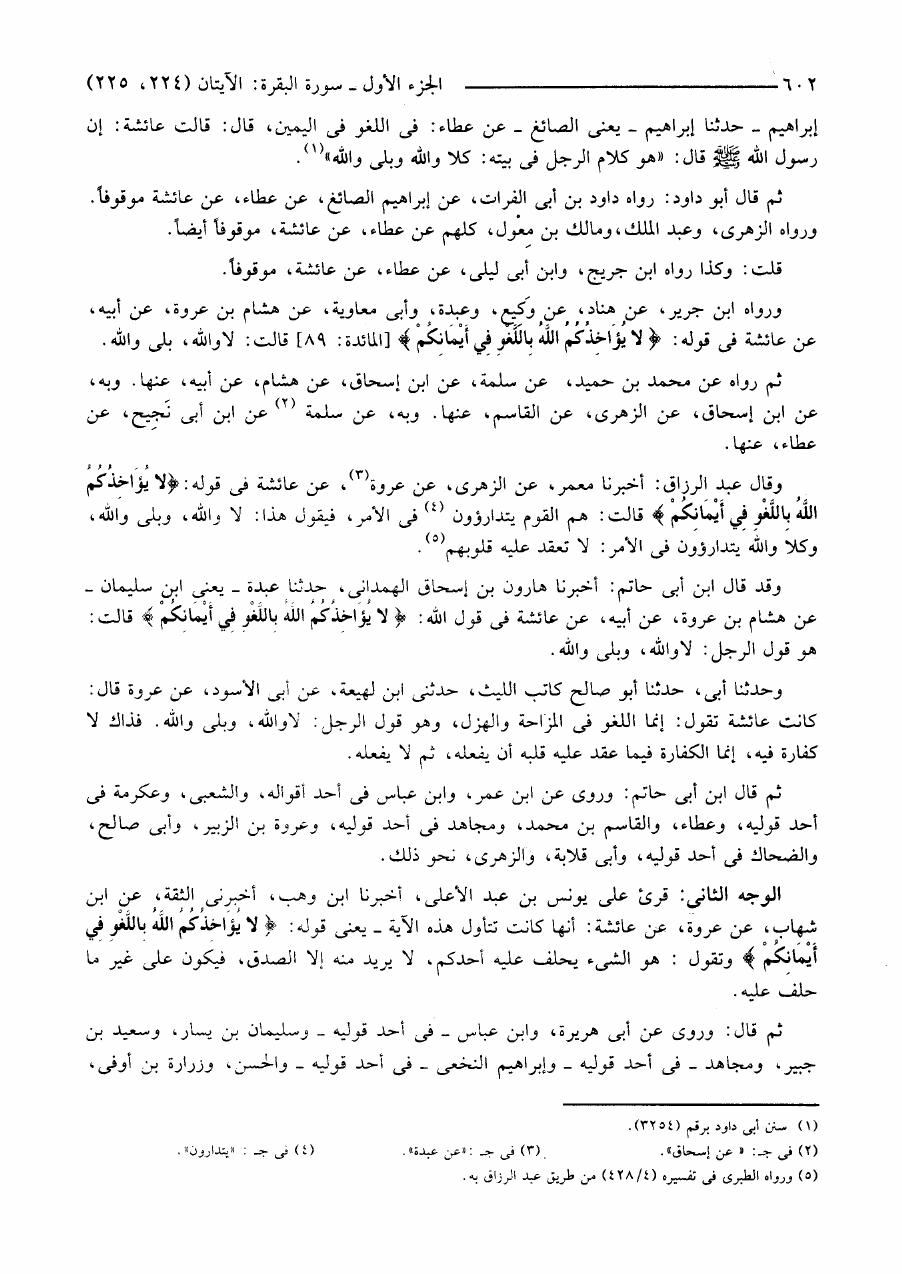 ٦٠٢ ـــــــــــــــــــــــــــــ الجزء الأول ـ سورة البقرة: الآيتان (٢٢٤، ٢٢٥)
إبراهيم ـ حدثنا إبراهيم ـ يعنى الصائغ ـ عن عطاء: فى اللغو فى اليمين، قال: قالت عائشة: إن
رسول الله ﷺ قال: «هو كلام الرجل فى بيته: كلا والله وبلى والله»(١).
ثم قال أبو داود: رواه داود بن أبى الفرات، عن إبراهيم الصائغ، عن عطاء، عن عائشة موقوفاً.
ورواه الزهرى، وعبد الملك،ومالك بن مِغْول، كلهم عن عطاء، عن عائشة، موقوفاً أيضاً.
قلت: وكذا رواه ابن جريج، وابن أبى ليلى، عن عطاء، عن عائشة، موقوفاً.
ورواه ابن جرير، عن هناد، عن وَكيع، وعبدة، وأبى معاوية، عن هشام بن عروة، عن أبيه،
عن عائشة فى قوله: ﴿ لا يُؤَاخِذُكُمُ اللَّهُ بِاللَّغْوِ فِي أَيْمَانِكُمْ ﴾ [المائدة: ٨٩] قالت: لاوالله، بلى والله.
ثم رواه عن محمد بن حميد، عن سلمة، عن ابن إسحاق، عن هشام، عن أبيه، عنها. وبه،
عن ابن إسحاق، عن الزهرى، عن القاسم، عنها. وبه، عن سلمة (٢) عن ابن أبى نَجِيح، عن
عطاء، عنها.
وقال عبد الرزاق: أخبرنا معمر، عن الزهرى، عن عروة(٣)، عن عائشة فى قوله: ﴿لا يُؤَاخِذُكُمُ
اللَّهُ بِاللَّغْوِ فِي أَيْمَانِكُمْ ﴾ قالت: هم القوم يتدارؤون (٤) فى الأمر، فيقول هذا: لا والله، وبلى والله،
وكلا والله يتدارؤون فى الأمر: لا تعقد عليه قلوبهم(٥).
وقد قال ابن أبى حاتم: أخبرنا هارون بن إسحاق الهمدانى، حدثنا عبدة ـ يعنى ابن سليمان ـ
عن هشام بن عروة، عن أبيه، عن عائشة فى قول الله: ﴿ لا يُؤَاخِذُكُمُ اللَّهُ بِاللَّغْوِ فِي أَيْمَانِكُمْ ﴾ قالت:
هو قول الرجل: لاوالله، وبلى والله.
وحدثنا أبى، حدثنا أبو صالح كاتب الليث، حدثنى ابن لهيعة، عن أبى الأسود، عن عروة قال:
كانت عائشة تقول: إنما اللغو فى المزاحة والهزل، وهو قول الرجل: لاوالله، وبلى والله. فذاك لا
كفارة فيه، إنما الكفارة فيما عقد عليه قلبه أن يفعله، ثم لا يفعله.
ثم قال ابن أبى حاتم: وروى عن ابن عمر، وابن عباس فى أحد أقواله، والشعبى، وعكرمة فى
أحد قوليه، وعطاء، والقاسم بن محمد، ومجاهد فى أحد قوليه، وعروة بن الزبير، وأبى صالح،
والضحاك فى أحد قوليه، وأبى قلابة، والزهرى، نحو ذلك.
الوجه الثانى: قرئ على يونس بن عبد الأعلى، أخبرنا ابن وهب، أخبرنى الثقة، عن ابن
شهاب، عن عروة، عن عائشة: أنها كانت تتأول هذه الآية ـ يعنى قوله: ﴿ لا يُؤَاخِذُكُمُ اللَّهُ بِاللَّغْوِ فِي
أَيْمَانِكُمْ ﴾ وتقول : هو الشىء يحلف عليه أحدكم، لا يريد منه إلا الصدق، فيكون على غير ما
حلف عليه.
ثم قال: وروى عن أبى هريرة، وابن عباس ـ فى أحد قوليه ـ وسليمان بن يسار، وسعيد بن
جبير، ومجاهد ـ فى أحد قوليه ـ وإبراهيم النخعى ـ فى أحد قوليه ـ والحسن، وزرارة بن أوفى،
(١) سنن أبى داود برقم (٣٢٥٤).
(٢) فى جـ: « عن إسحاق». (٣) فى جـ :«عن عبدة». (٤) فى جـ : «يتدارون».
(٥) ورواه الطبرى فى تفسيره (٤٢٨/٤) من طريق عبد الرزاق به.